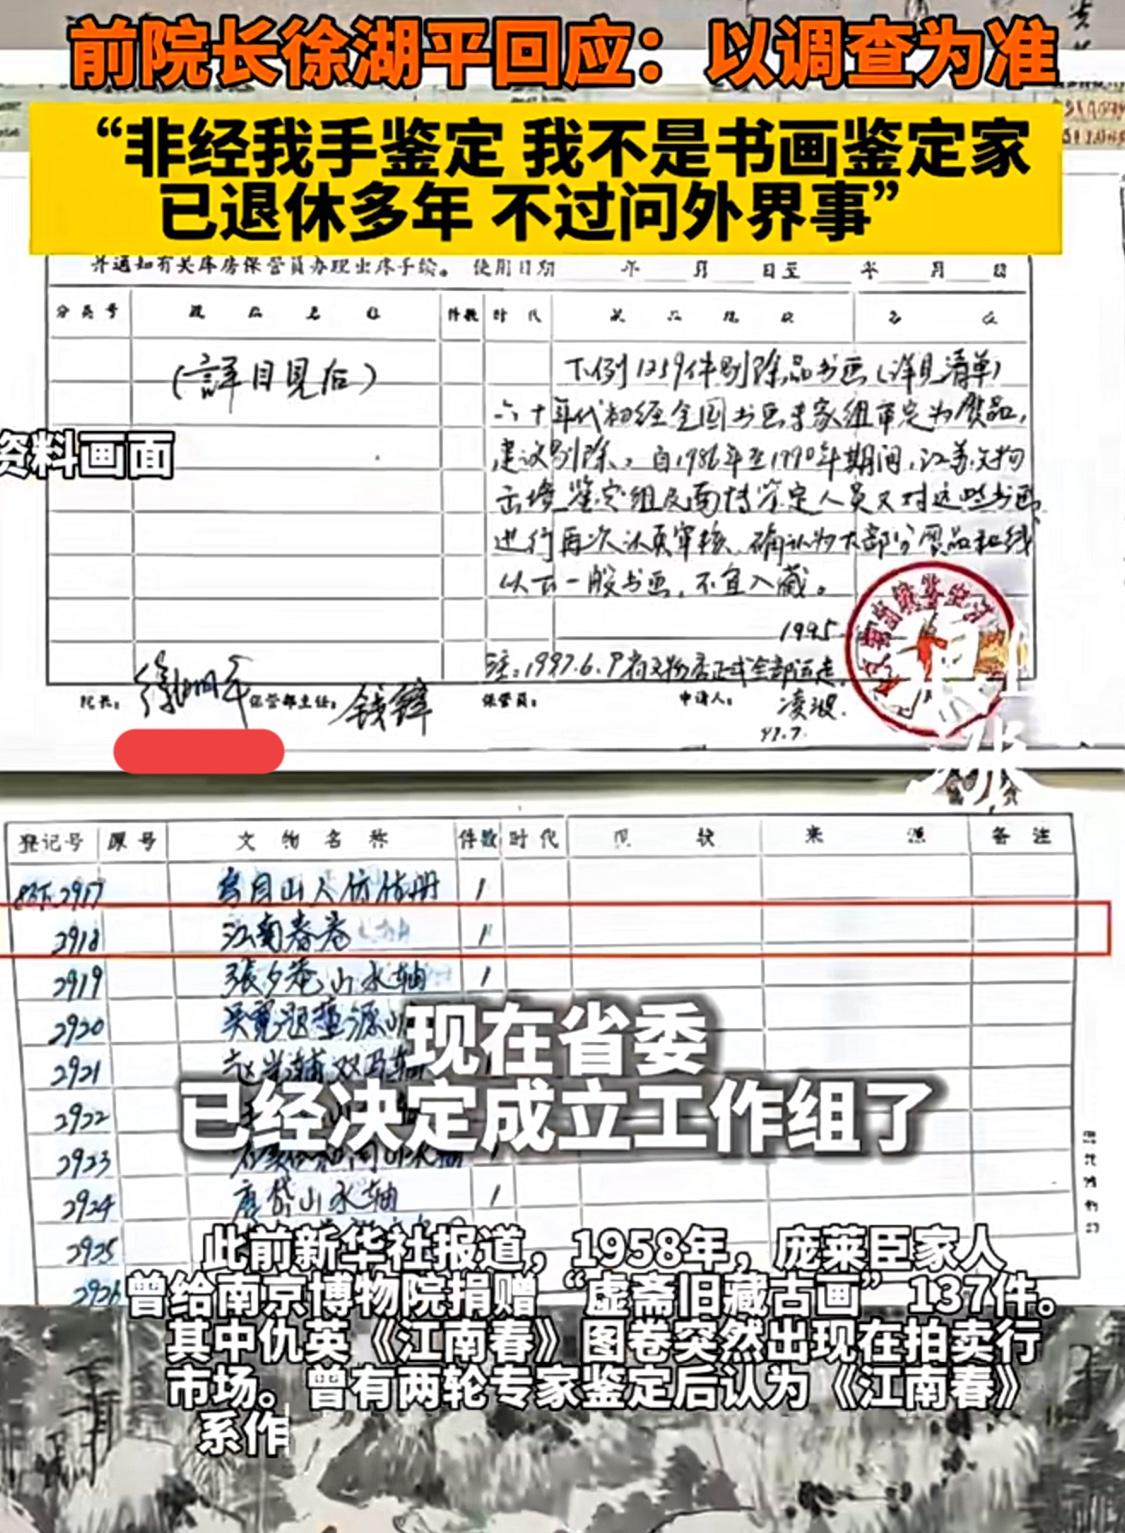 前院长徐湖平回应：以调查为准
“非经我手鉴定 我不是书画鉴定家
已退休多年 不过问外界事”
并通知有关库房保管员办理出库手续。 使用日期 年 月 日至 年 月 日
分类号 件数 时代
(詳目見后)
下例1259件剔除品书画(详见清单)
六十年代初经全国书画专家组审定为赝品,
建议剔除。自1986年至1990年期间,江苏文物
出境鉴定组及南博鉴定人员又对这些书画
进行再次认真审核、确认为大部分赝品和线
以下一般书画,不宜入藏。
资料画面
1995
注:1997.6.9 正式全部运走
院长: 徐湖平 保管部主任: 钱锋 保管员: 申请人: 凌波
97.7.
登记号 原号 文物名称 件数 时代 现状 来源 备注
2917 1
2918 江南春卷 1
2919 張夕菴山水軸 1
2920
2921
2922
2923
2924 唐岱山水轴 1
2925
2926
现在省委
已经决定成立工作组了
此前新华社报道，1958年，庞莱臣家人
曾给南京博物院捐赠“虚斋旧藏古画”137件。
其中仇英《江南春》图卷突然出现在拍卖行
市场。曾有两轮专家鉴定后认为《江南春》
系作